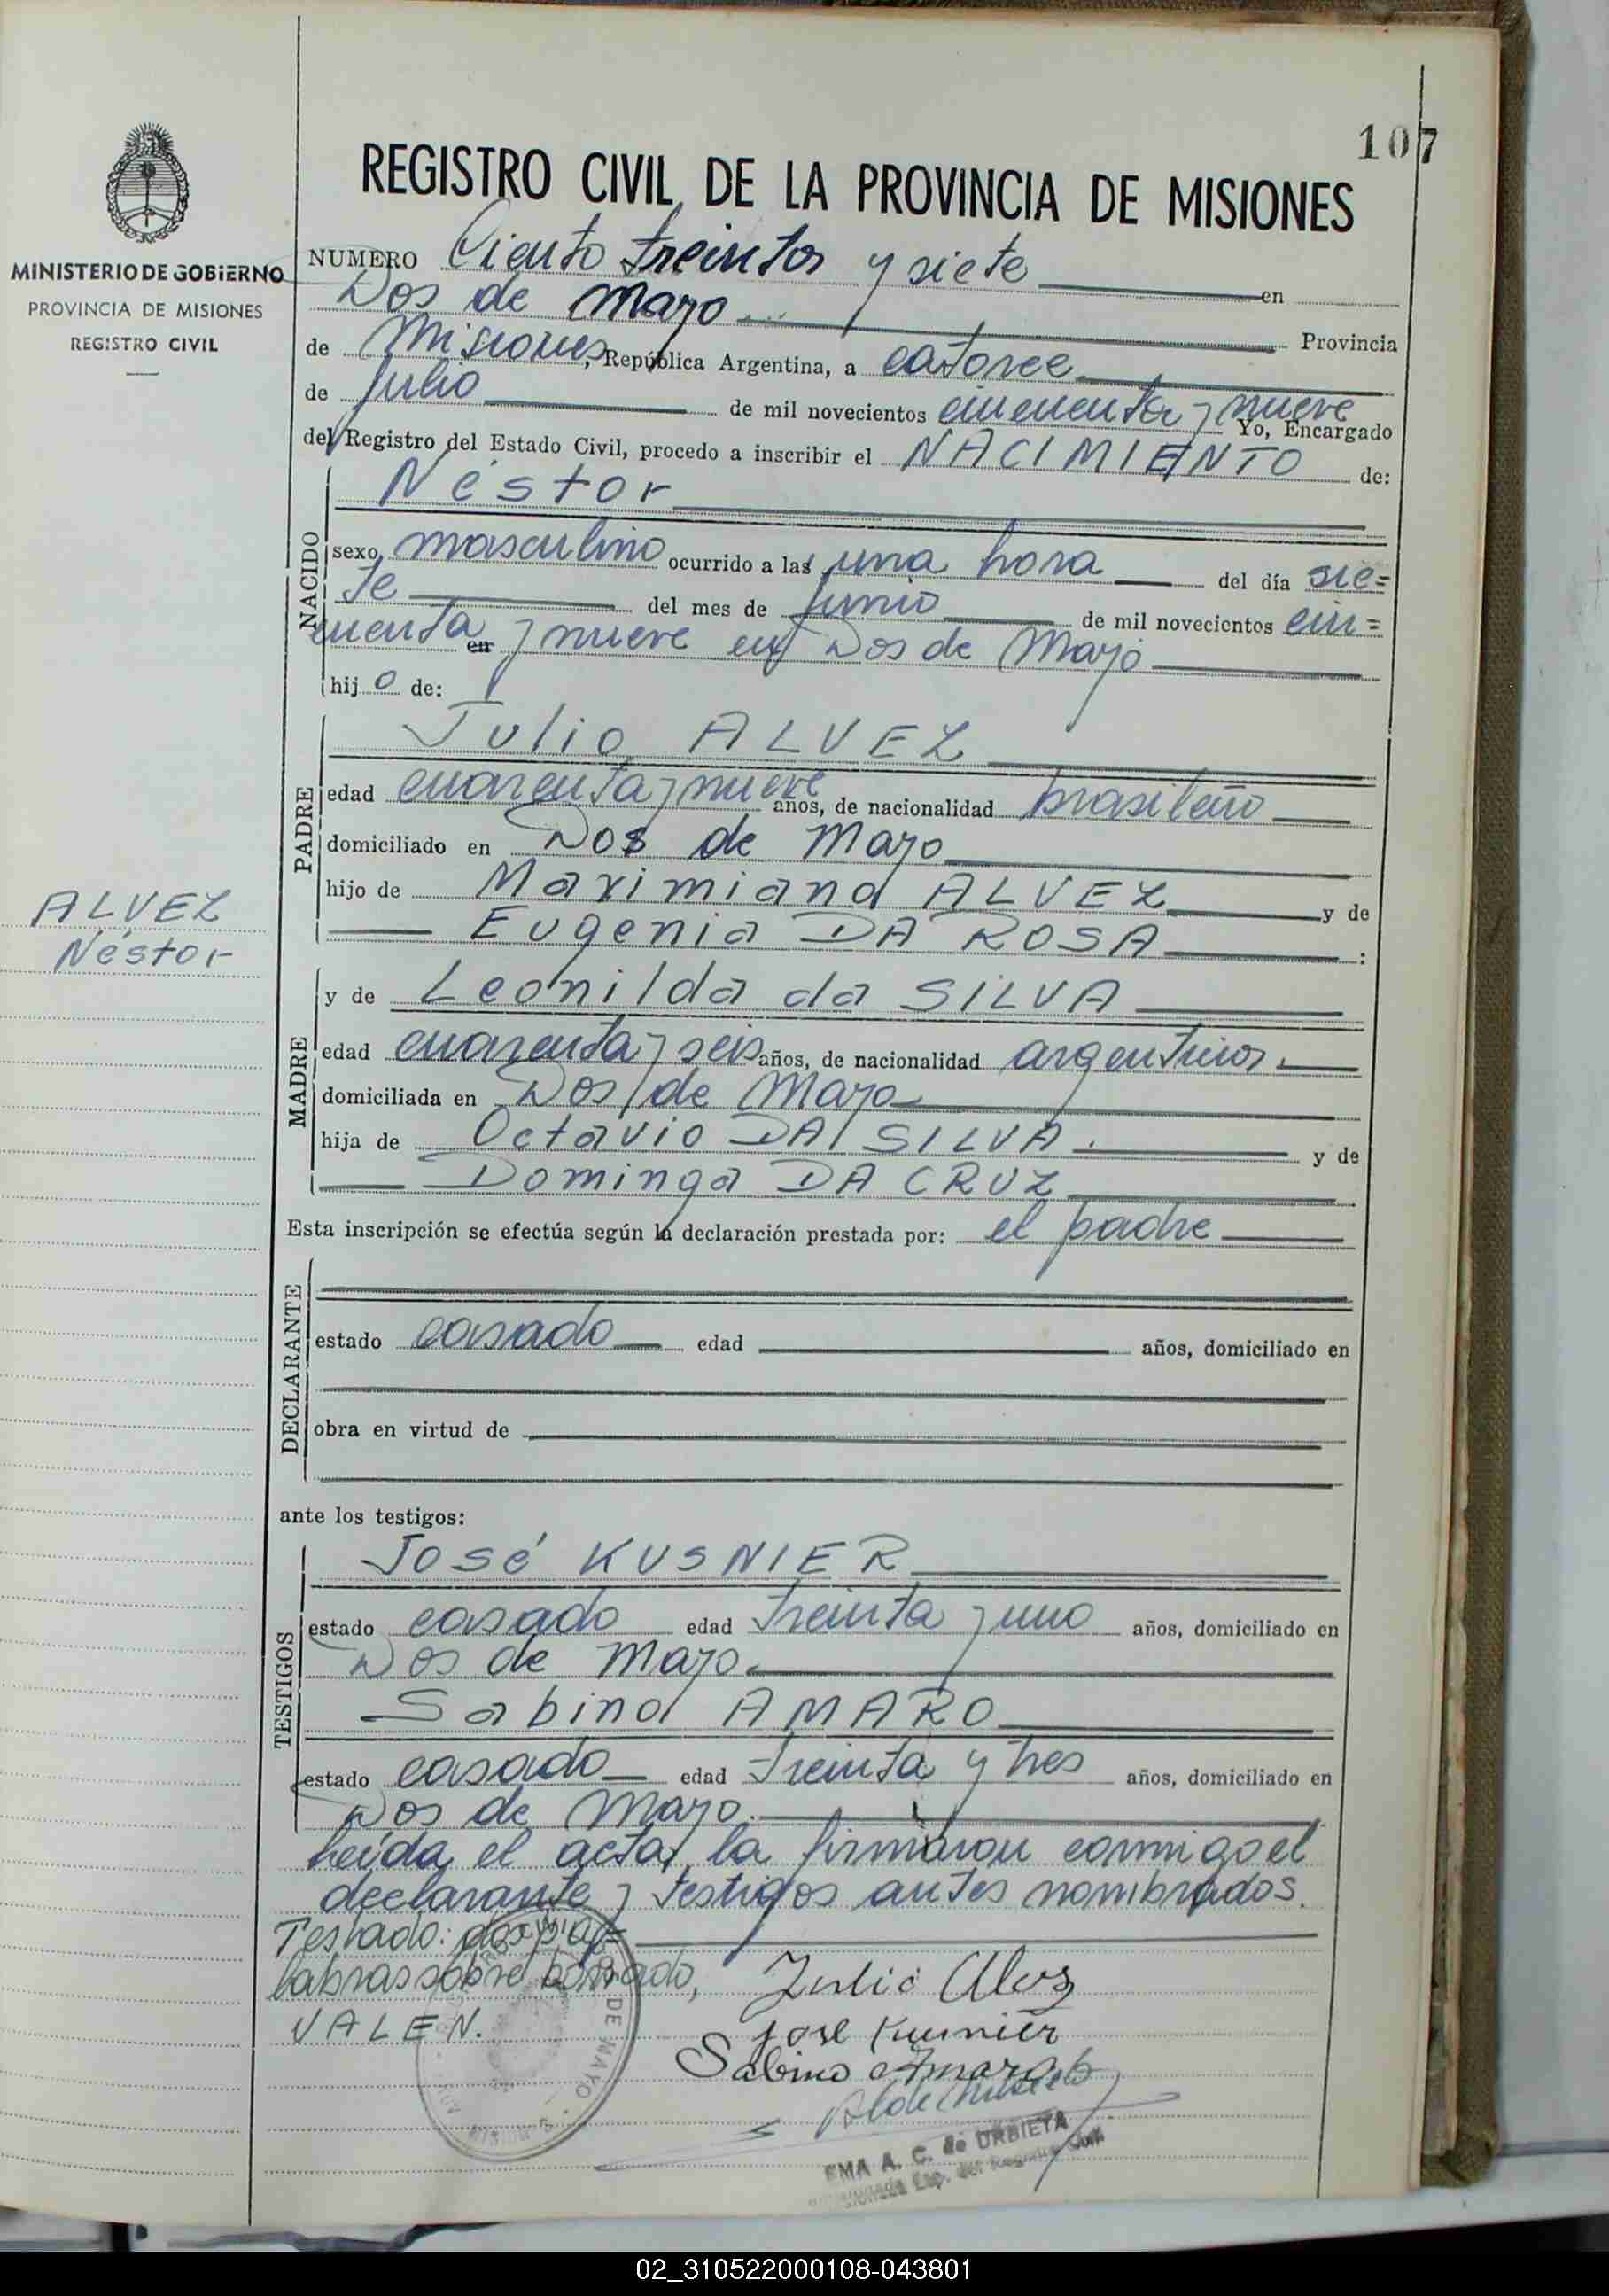 107
REGISTRO CIVIL DE LA PROVINCIA DE MISIONES
MINISTERIO DE GOBIERNO
PROVINCIA DE MISIONES
REGISTRO CIVIL
NUMERO Ciento treinta y siete en
Dos de Mayo Provincia
de Misiones, República Argentina, a catorce
de julio de mil novecientos cincuenta y nueve Yo, Encargado
del Registro del Estado Civil, procedo a inscribir el NACIMIENTO de:
NACIDO
Néstor
sexo masculino ocurrido a las una hora del día sie=
te del mes de junio de mil novecientos cin=
cuenta y nueve en Dos de Mayo
hijo de:
PADRE
Julio ALVEZ
edad cuarenta y nueve años, de nacionalidad brasileño
domiciliado en Dos de Mayo
hijo de Maximiano ALVEZ y de
Eugenia DA ROSA :
ALVEZ
Néstor
MADRE
y de Leonilda da SILVA
edad cuarenta y seis años, de nacionalidad argentina
domiciliada en Dos de Mayo
hija de Octavio DA SILVA. y de
Dominga DA CRUZ
Esta inscripción se efectúa según la declaración prestada por: el padre
DECLARANTE
estado casado edad años, domiciliado en
obra en virtud de
ante los testigos:
TESTIGOS
José KUSNIER
estado casado edad treinta y uno años, domiciliado en
Dos de Mayo.
Sabino AMARO
estado casado edad treinta y tres años, domiciliado en
Dos de Mayo.
Leída el acta, la firmaron conmigo el
declarante y testigos antes nombrados.
Testado: dos pa=
labras sobre borrado,
VALEN.
DE MAYO
Julio Alvez
José Kusnier
Sabino Amaro
EMA A. C. de URBIETA
02_310522000108-043801